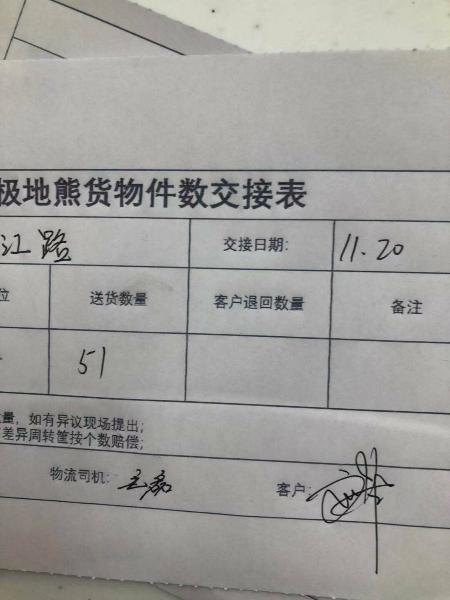 极地熊货物件数交接表
江路 交接日期: 11.20
位 送货数量 客户退回数量 备注
51
量，如有异议现场提出；
差异周转筐按个数赔偿；
物流司机: 客户: